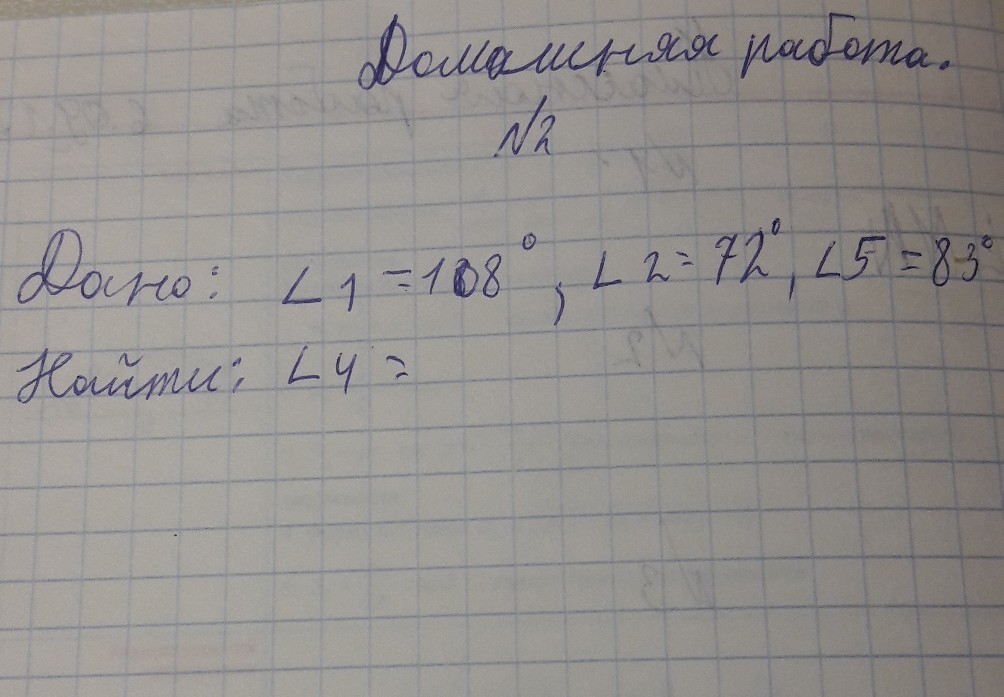 Домашняя работа.
№2
Дано: ∠1 = 108°; ∠2 = 72°, ∠5 = 83°
Найти: ∠4 =